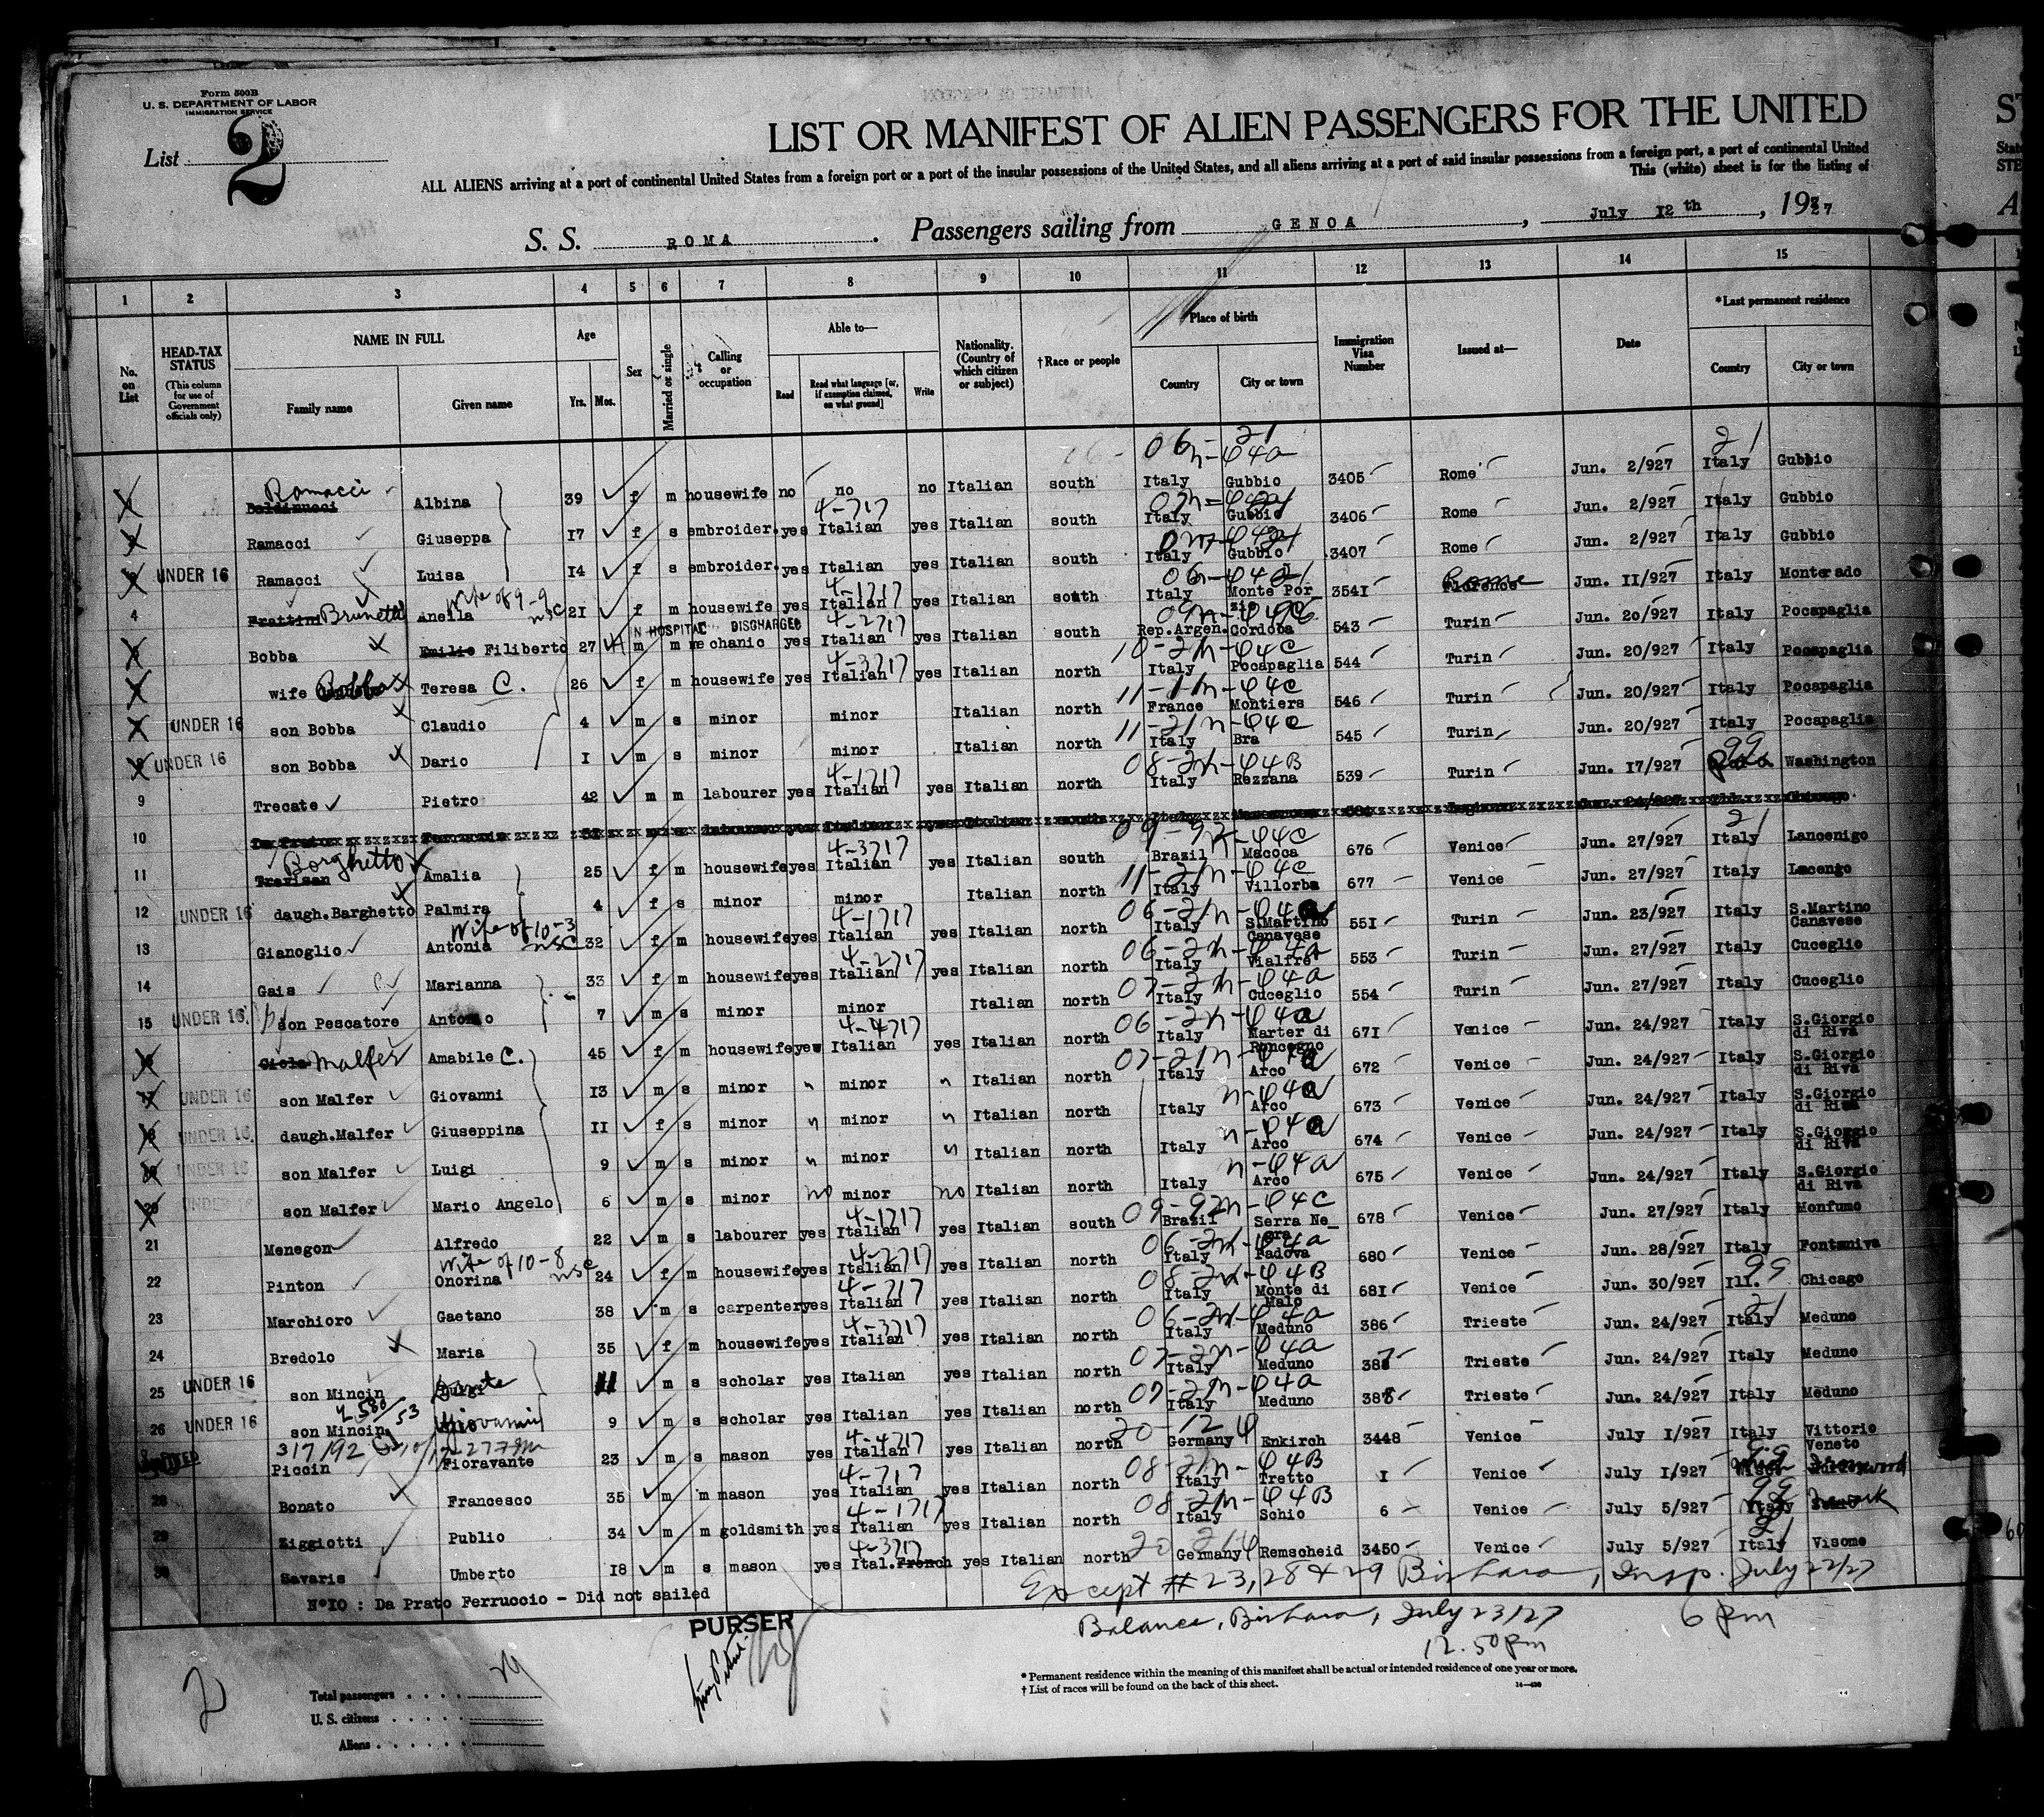 Form 500B
U. S. DEPARTMENT OF LABOR
IMMIGRATION SERVICE
List 2
LIST OR MANIFEST OF ALIEN PASSENGERS FOR THE UNITED
ALL ALIENS arriving at a port of continental United States from a foreign port or a port of the insular possessions of the United States, and all aliens arriving at a port of said insular possessions from a foreign port, a port of continental United
This (white) sheet is for the listing of
S. S. ROMA. Passengers sailing from GENOA, July 12th, 1927
1 2 3 4 5 6 7 8 9 10 11 12 13 14 15
No. on List
HEAD-TAX STATUS
(This column for use of Government officials only)
NAME IN FULL
Family name Given name
Age
Yrs. Mos.
Sex
Married or single
Calling or occupation
Able to—
Read Read what language [or, if exemption claimed, on what ground] Write
Nationality. (Country of which citizen or subject)
†Race or people
Place of birth
Country City or town
Immigration Visa Number
Issued at—
Date
*Last permanent residence
Country City or town
Ramacci Albina 39 f m housewife no no no Italian south Italy Gubbio 3405 Rome Jun. 2/927 Italy Gubbio
Ramacci Giuseppa 17 f s embroider. yes Italian yes Italian south Italy Gubbio 3406 Rome Jun. 2/927 Italy Gubbio
UNDER 16 Ramacci Luisa 14 f s embroider. yes Italian yes Italian south Italy Gubbio 3407 Rome Jun. 2/927 Italy Gubbio
4 Frattini Brunetti Anella Wife of 9-9 nsc 21 f m housewife yes Italian yes Italian south Italy Monte Porzio 3541 Florence Rome Jun. 11/927 Italy Monterado
IN HOSPITAL DISCHARGED
5 Bobba Emilio Filiberto 27 m m mechanic yes Italian yes Italian south Rep.Argen. Cordoba 543 Turin Jun. 20/927 Italy Pocapaglia
wife Bobba Teresa C. 26 f m housewife yes Italian yes Italian north Italy Pocapaglia 544 Turin Jun. 20/927 Italy Pocapaglia
UNDER 16 son Bobba Claudio 4 m s minor minor Italian north France Montiers 546 Turin Jun. 20/927 Italy Pocapaglia
UNDER 16 son Bobba Dario 1 m s minor minor Italian north Italy Bra 545 Turin Jun. 20/927 Italy Pocapaglia
9 Trecate Pietro 42 m m labourer yes Italian yes Italian north Italy Rezzana 539 Turin Jun. 17/927 Washington
10 Da Prato Ferruccio
11 Trevisan Borghetto Amalia 25 f m housewife yes Italian yes Italian south Brazil Macoca 676 Venice Jun. 27/927 Italy Lancenigo
12 UNDER 16 daugh. Barghetto Palmira 4 f s minor minor Italian north Italy Villorba 677 Venice Jun. 27/927 Italy Lacengo
13 Gianoglio Antonia Wife of 10-3 nsc 32 f m housewife yes Italian yes Italian north Italy S.Martino Canavese 551 Turin Jun. 23/927 Italy S.Martino Canavese
14 Gais Marianna 33 f m housewife yes Italian yes Italian north Italy Vialfre 553 Turin Jun. 27/927 Italy Cuceglio
15 UNDER 16. son Pescatore Antonio 7 m s minor minor Italian north Italy Cuceglio 554 Turin Jun. 27/927 Italy Cuceglio
16 Malfer Amabile C. 45 f m housewife yes Italian yes Italian north Italy Marter di Roncegno 671 Venice Jun. 24/927 Italy S.Giorgio di Riva
17 UNDER 16 son Malfer Giovanni 13 m s minor minor Italian north Italy Arco 672 Venice Jun. 24/927 Italy S.Giorgio di Riva
18 UNDER 16. daugh.Malfer Giuseppina 11 f s minor minor Italian north Italy Arco 673 Venice Jun. 24/927 Italy S.Giorgio di Riva
19 UNDER 16 son Malfer Luigi 9 m s minor minor Italian north Italy Arco 674 Venice Jun. 24/927 Italy S.Giorgio di Riva
20 UNDER 16 son Malfer Mario Angelo 6 m s minor no minor no Italian north Italy Arco 675 Venice Jun. 24/927 Italy S.Giorgio di Riva
21 Menegon Alfredo 22 m s labourer yes Italian yes Italian south Brazil Serra Ne_gra 678 Venice Jun. 27/927 Italy Monfumo
22 Pinton Onorina Wife of 10-8 nsc 24 f m housewife yes Italian yes Italian north Italy Padova 680 Venice Jun. 28/927 Italy Fontaniva
23 Marchioro Gaetano 38 m s carpenter yes Italian yes Italian north Italy Monte di Malo 681 Venice Jun. 30/927 Ill. Chicago
24 Bredolo Maria 35 f m housewife yes Italian yes Italian north Italy Meduno 386 Trieste Jun. 24/927 Italy Meduno
25 UNDER 16 son Mincin 11 m s scholar yes Italian yes Italian north Italy Meduno 387 Trieste Jun. 24/927 Italy Meduno
26 UNDER 16 son Mincin Giovanni 9 m s scholar yes Italian yes Italian north Italy Meduno 388 Trieste Jun. 24/927 Italy Meduno
Piccin Fioravante 23 m s mason yes Italian yes Italian north Germany Enkirch 3448 Venice July 1/927 Italy Vittorio Veneto
28 Bonato Francesco 35 m m mason yes Italian yes Italian north Italy Tretto 1 Venice July 1/927
29 Ziggiotti Publio 34 m m goldsmith yes Italian yes Italian north Italy Schio 6 Venice July 5/927 Italy
30 Savaris Umberto 18 m s mason yes Ital.French yes Italian north Germany Remscheid 3450 Venice July 5/927 Italy Visome
N°10 : Da Prato Ferruccio - Did not sailed
Except # 23, 28 & 29 Insp. July 22/27
6 pm
Balance, July 23/27
12.50 pm
PURSER
2
Total passengers
U. S. citizens
Aliens
* Permanent residence within the meaning of this manifest shall be actual or intended residence of one year or more.
† List of races will be found on the back of this sheet.